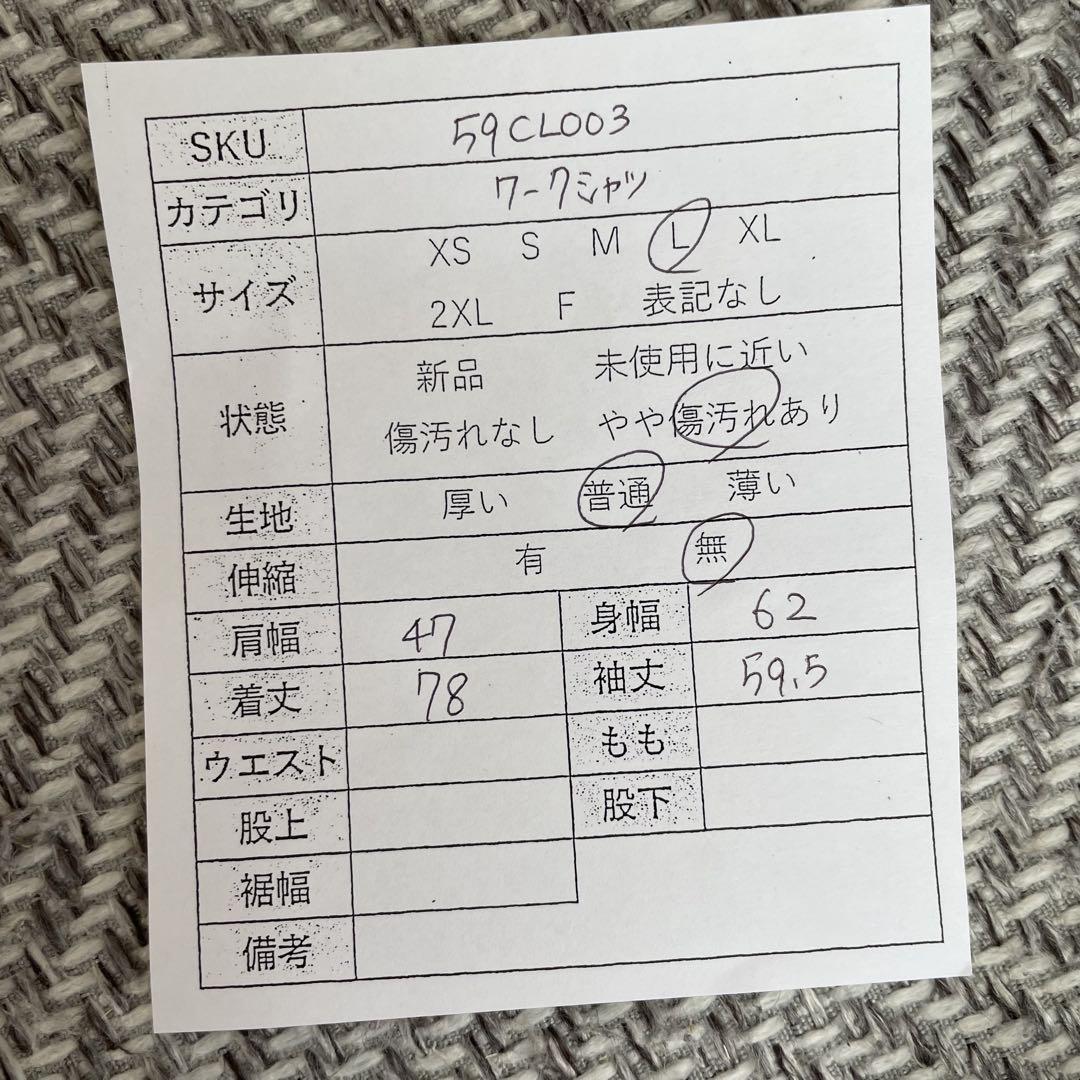 SKU 59CL003
カテゴリ ワークシャツ
サイズ XS S M L XL
2XL F 表記なし
状態 新品 未使用に近い
傷汚れなし やや傷汚れあり
生地 厚い 普通 薄い
伸縮 有 無
肩幅 47 身幅 62
着丈 78 袖丈 59.5
ウエスト もも
股上 股下
裾幅
備考